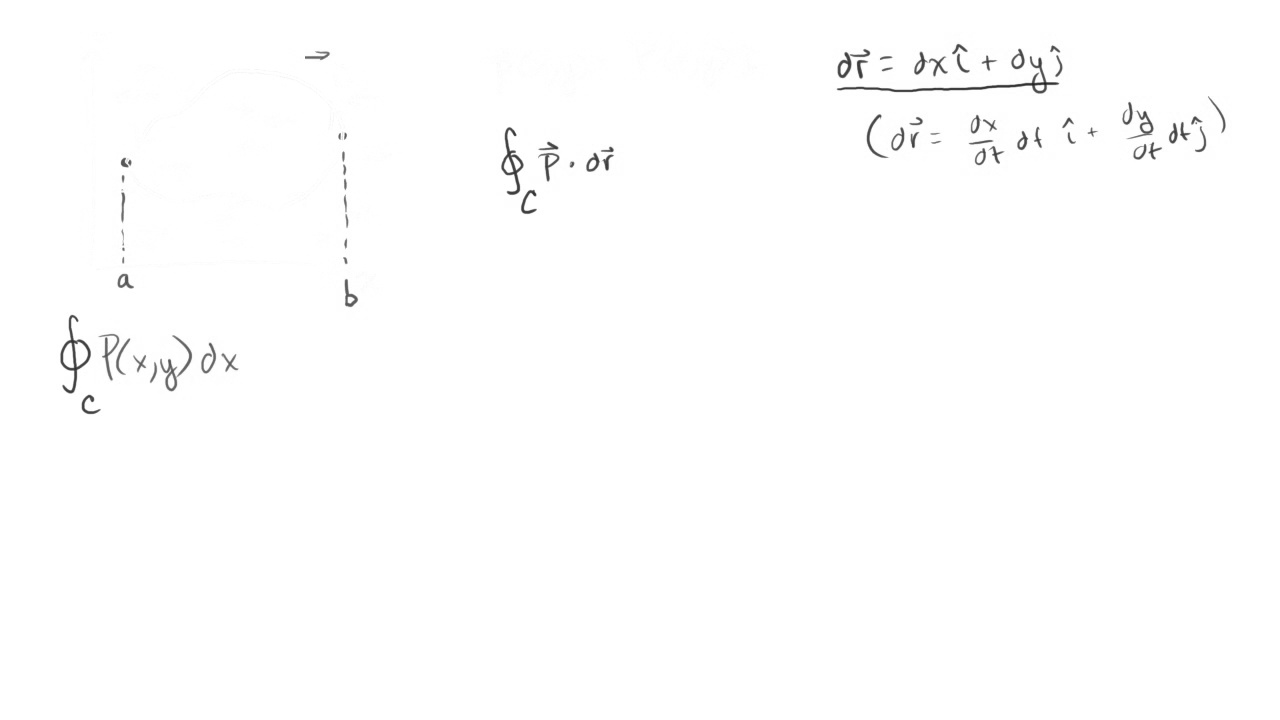 a
b
∮_C P(x,y) dx
∮_C P⃗ · dr⃗
dr⃗ = dx î + dy ĵ
(dr⃗ = dx/dt dt î + dy/dt dt ĵ)